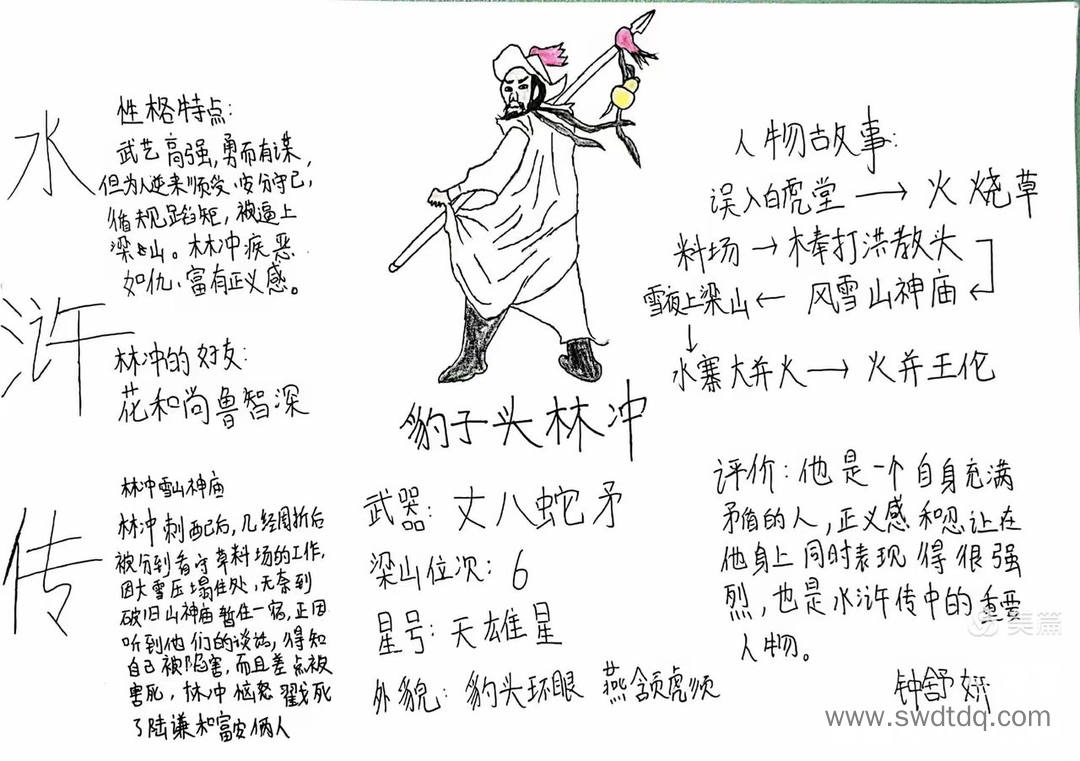 水
浒
传
性格特点:
武艺高强,勇而有谋,
但为人逆来顺受、安分守己,
循规蹈矩,被逼上
梁山。林冲疾恶
如仇、富有正义感。
林冲的好友:
花和尚鲁智深
林冲雪山神庙
林冲刺配后,几经周折后
被分到看守草料场的工作,
因大雪压塌住处,无奈到
破旧山神庙暂住一宿,正因
听到他们的谈话,得知
自己被陷害,而且差点被
害死,林冲恼怒戳死
了陆谦和富安俩人
豹子头林冲
武器:丈八蛇矛
梁山位次:6
星号:天雄星
外貌:豹头环眼 燕颔虎须
人物故事:
误入白虎堂→火烧草
料场→棒打洪教头
雪夜上梁山←风雪山神庙
水寨大并火→火并王伦
评价:他是一个自身充满
矛盾的人,正义感和忍让在
他身上同时表现得很强
烈,也是水浒传中的重要
人物。
钟舒妍
美篇
www.swdtdq.com